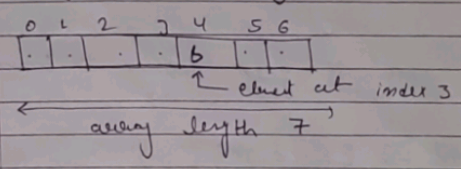 0 1 2 3 4 5 6
. . . . 6 . .
element at index 3
array length 7